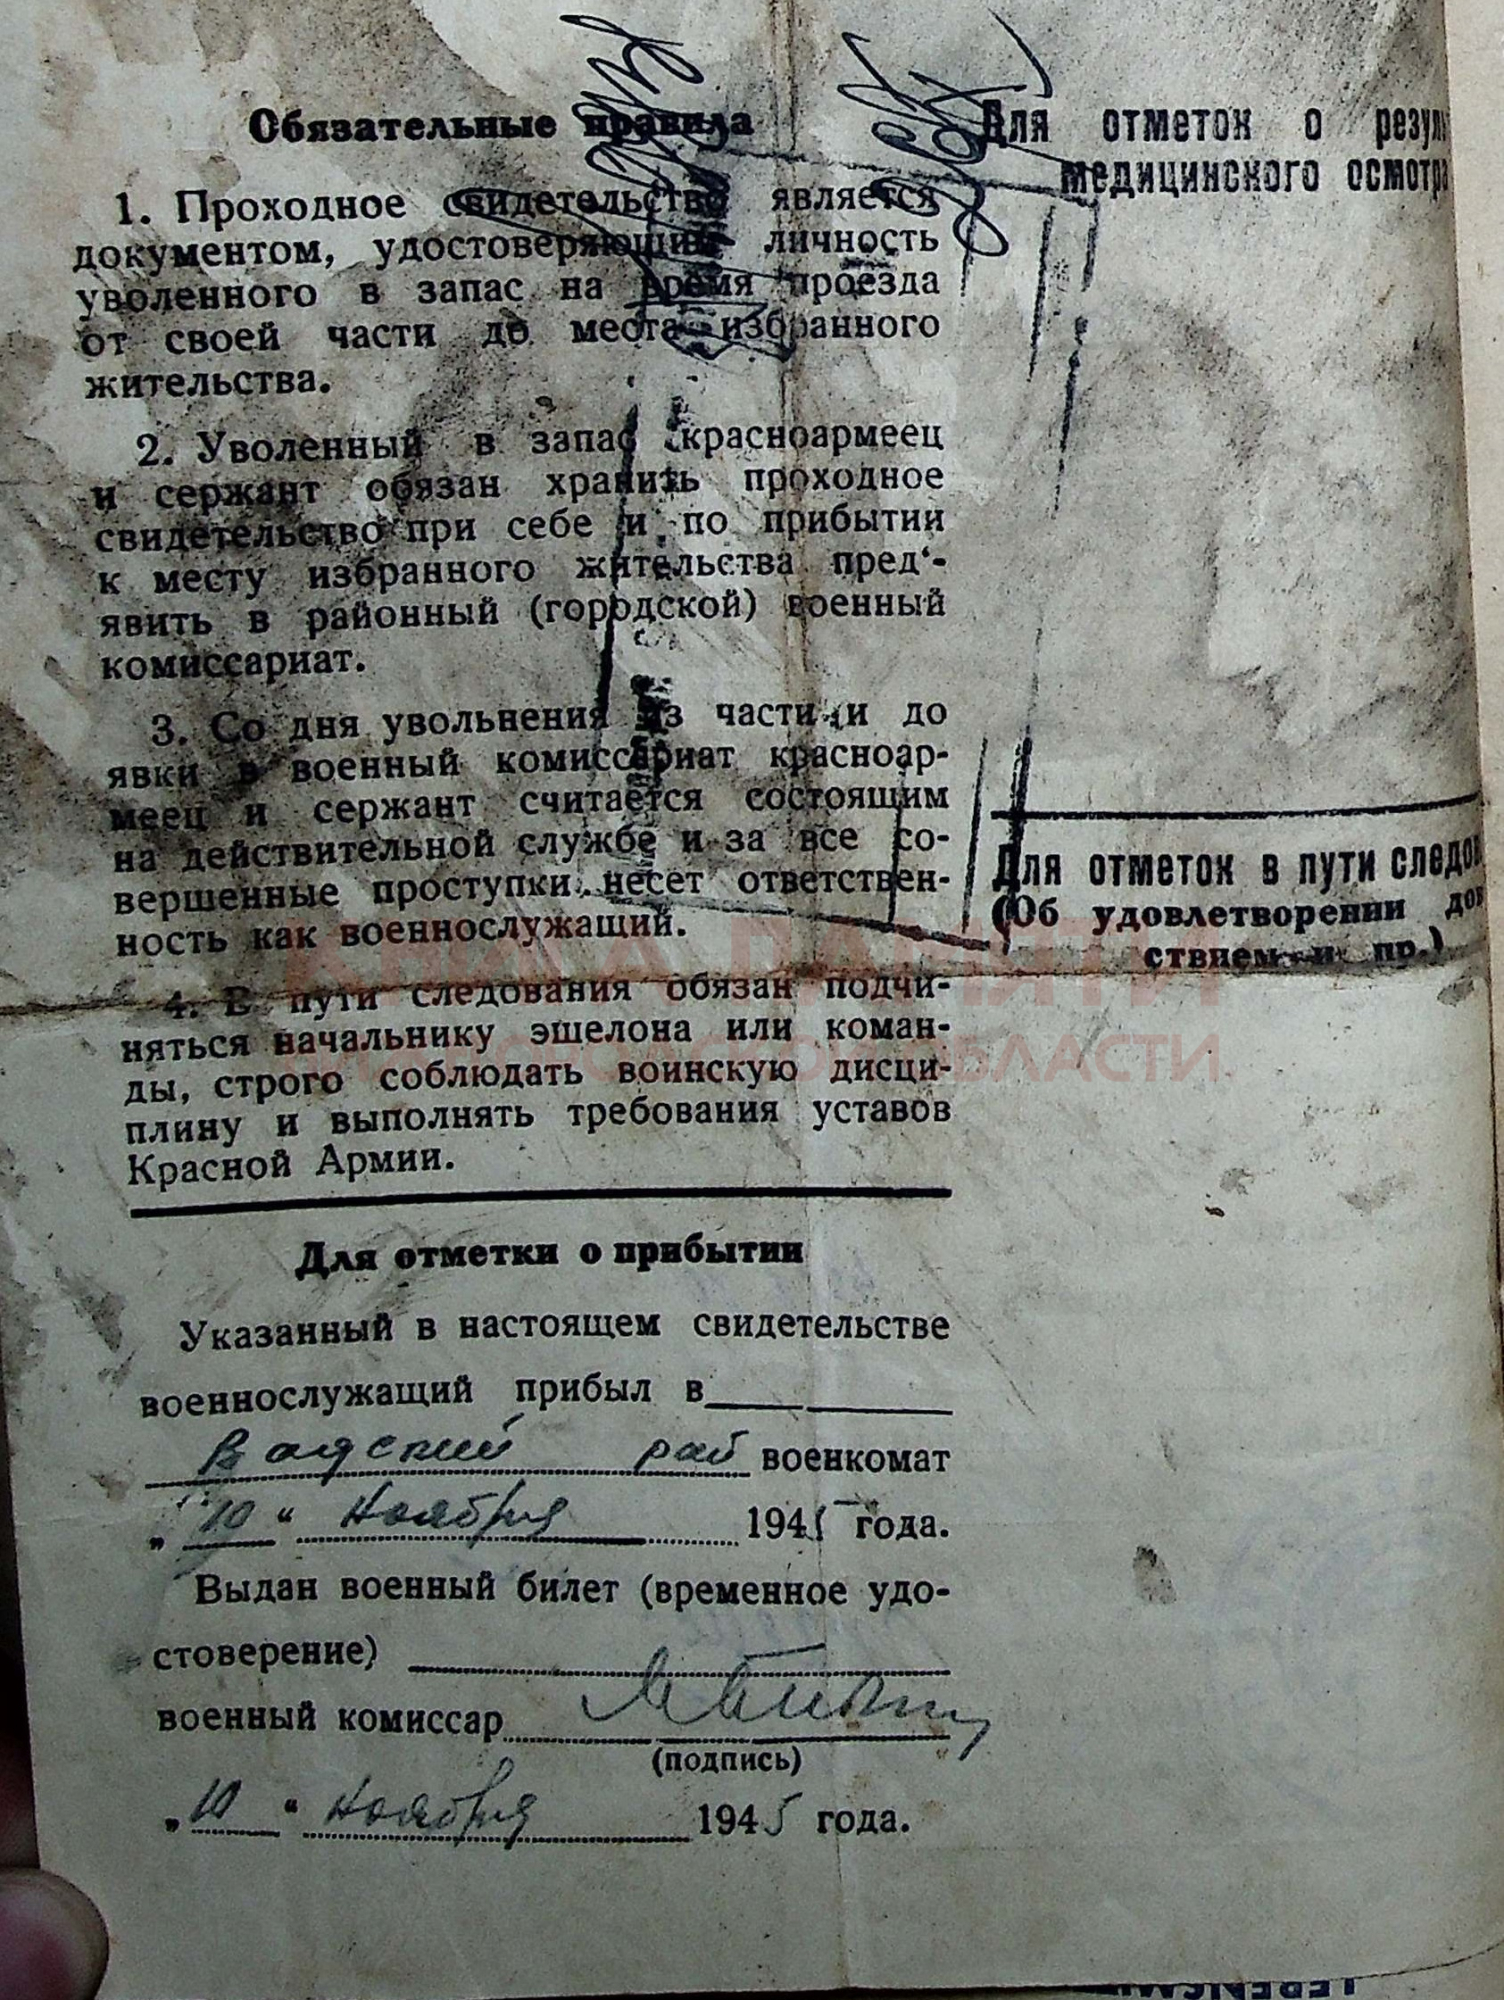 Обязательные правила
1. Проходное свидетельство является
документом, удостоверяющим личность
уволенного в запас на время проезда
от своей части до места избранного
жительства.
2. Уволенный в запас красноармеец
и сержант обязан хранить проходное
свидетельство при себе и по прибытии
к месту избранного жительства пред‘-
явить в районный (городской) военный
комиссариат.
3. Со дня увольнения из части и до
явки в военный комиссариат красноар-
меец и сержант считается состоящим
на действительной службе и за все со-
вершенные проступки несет ответствен-
ность как военнослужащий.
4. В пути следования обязан подчи-
няться начальнику эшелона или коман-
ды, строго соблюдать воинскую дисци-
плину и выполнять требования уставов
Красной Армии.
Для отметки о прибытии
Указанный в настоящем свидетельстве
военнослужащий прибыл в
Вадский рай военкомат
„10“ ноября 1945 года.
Выдан военный билет (временное удо-
стоверение)
военный комиссар
(подпись)
„10“ ноября 1945 года.
Для отметок о резуль
медицинского осмотра
Для отметок в пути следов
(Об удовлетворении дов
ствием и пр.)
КНИГА ПАМЯТИ
ОБЛАСТИ